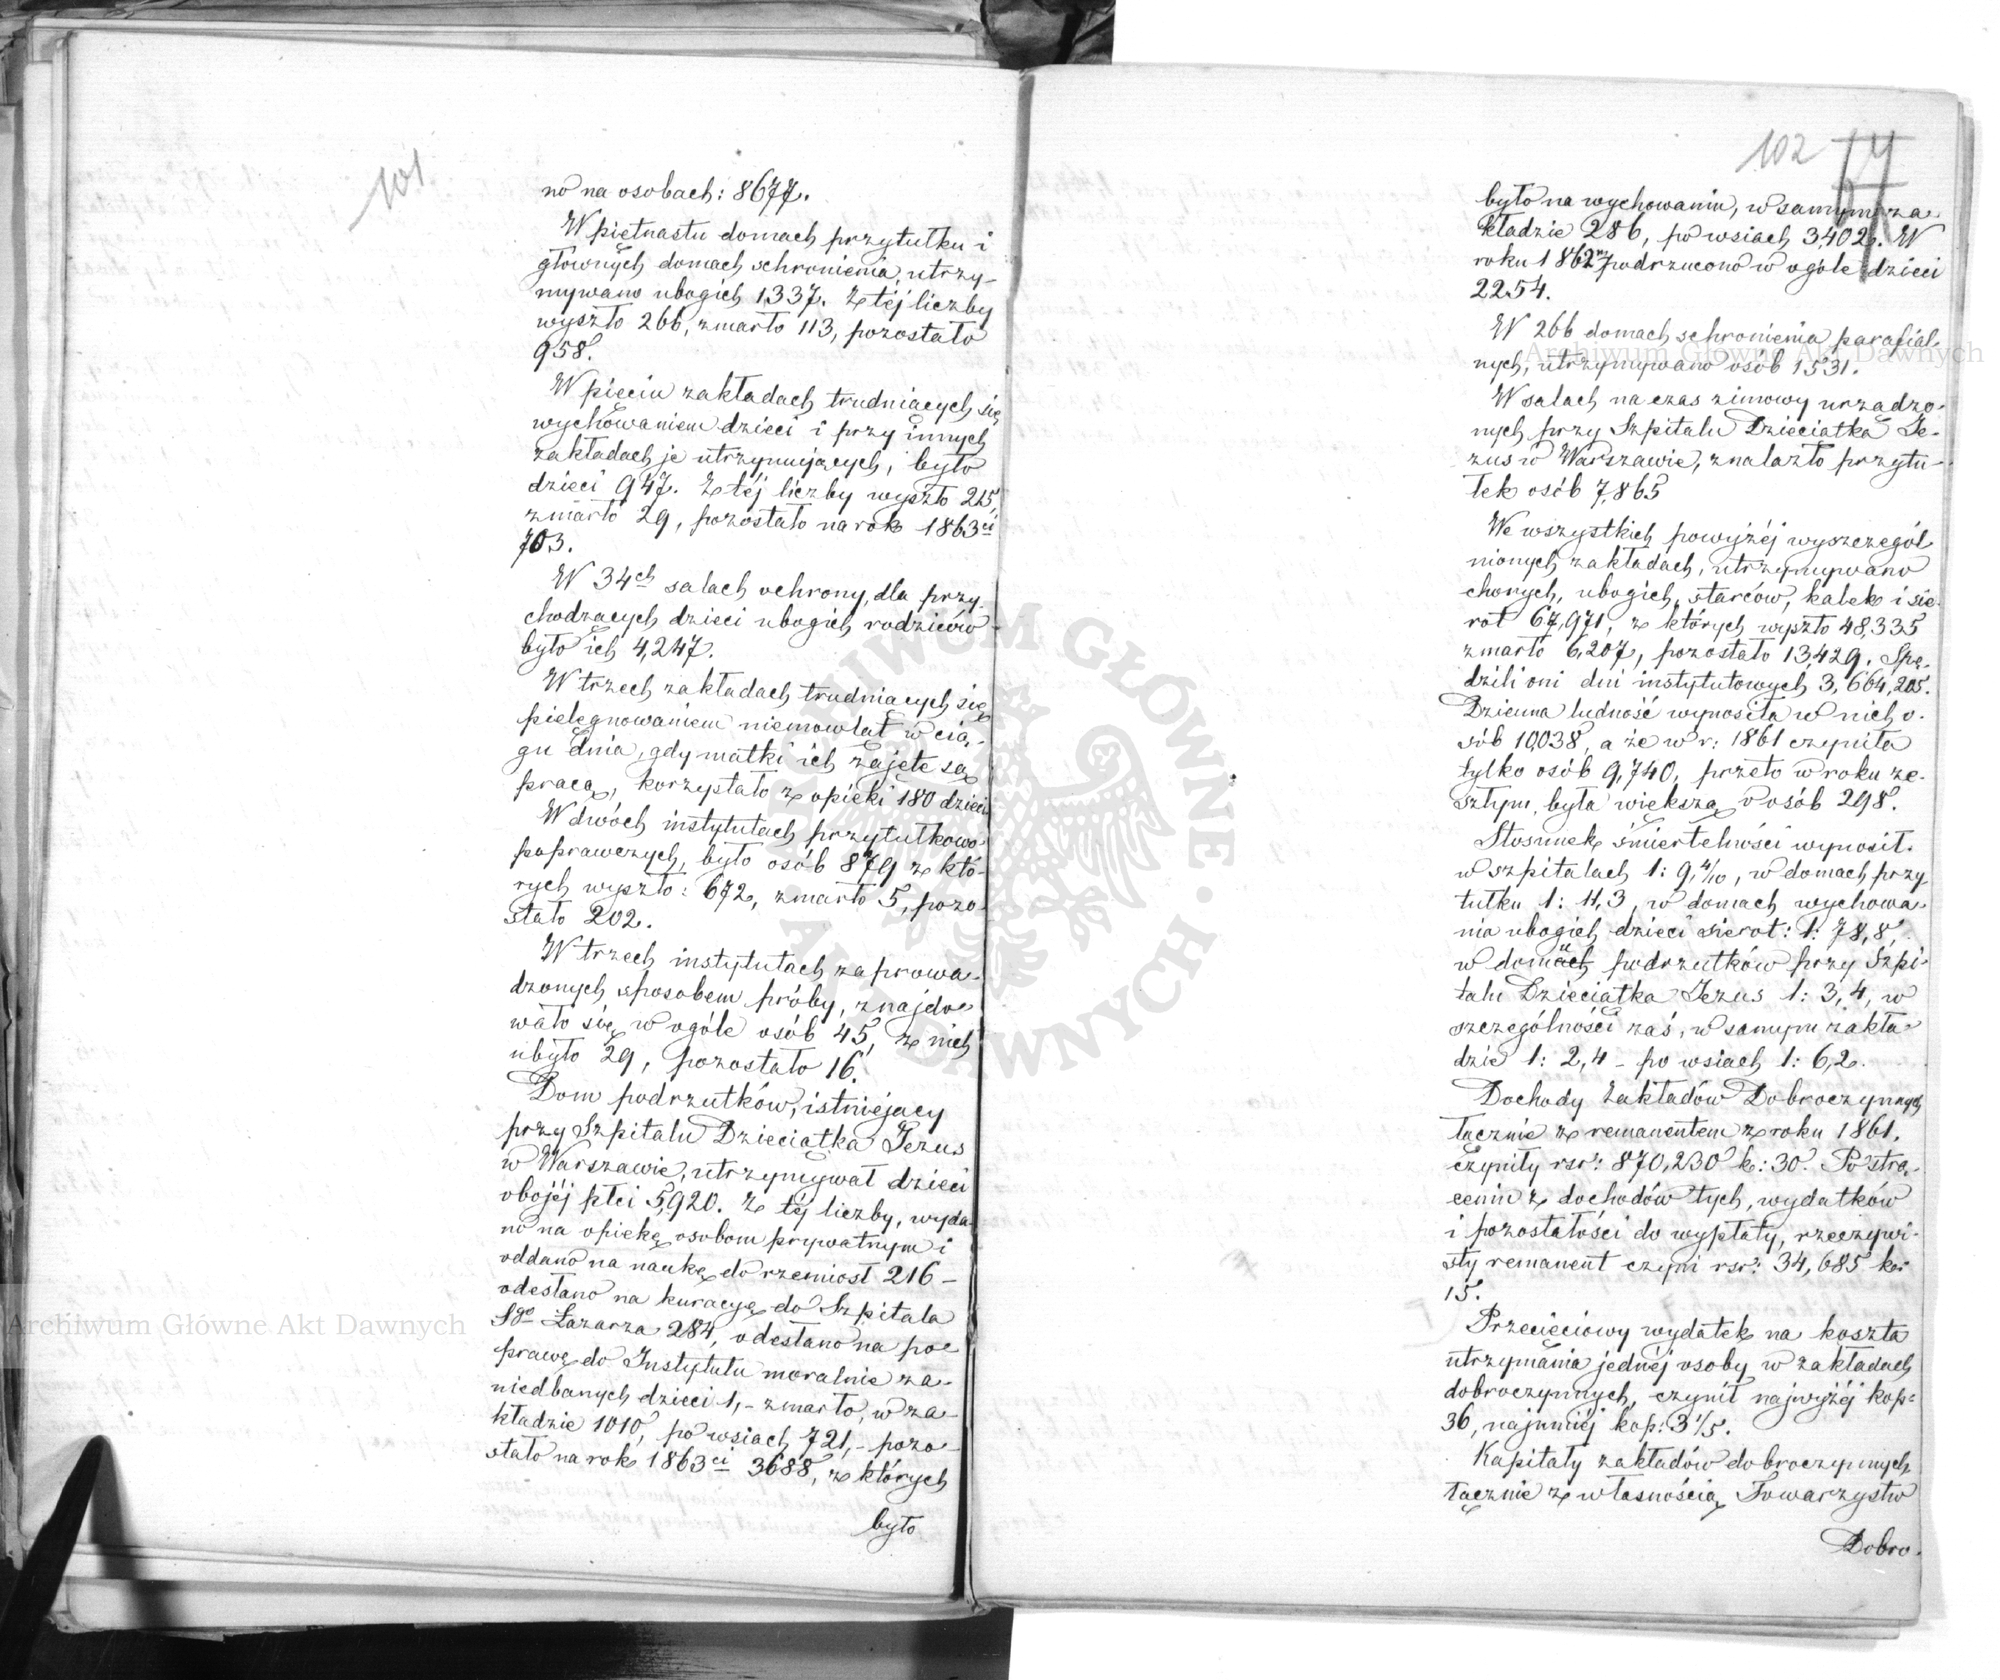 101
no na osobach: 8677.
W piętnastu domach przytułku i
głównych domach schronienia, utrzy-
mywano ubogich 1337. Z téj liczby
wyszło 266, zmarło 113, pozostało
958.
W pięciu zakładach trudniących się
wychowaniem dzieci i przy innych
zakładach je utrzymujących, było
dzieci 947. Z téj liczby wyszło 215,
zmarło 29, pozostało na rok 1863ci
703.
W 34ch salach ochrony, dla przy-
chodzących dzieci ubogich rodziców
było ich 4,247.
W trzech zakładach trudniących się
pielęgnowaniem niemowląt w cią-
gu dnia, gdy matki ich zajęte są
pracą, korzystało z opieki 180 dzieci.
W dwóch instytutach przytułkowo-
poprawczych, było osób 879 z któ-
rych wyszło: 672, zmarło 5, pozo-
stało 202.
W trzech instytutach zaprowa-
dzonych sposobem próby, znajdo-
wało się w ogóle osób 45, z nich
ubyło 29, pozostało 16.
Dom podrzutków, istniejący
przy Szpitalu Dzieciątka Jezus
w Warszawie, utrzymywał dzieci
obojéj płci 5,920. Z téj liczby, wyda-
no na opiekę osobom prywatnym i
oddano na naukę do rzemiosł 216 –
odesłano na kuracyę do Szpitala
Sgo Łazarza 284, odesłano na po-
prawę do Instytutu moralnie za-
niedbanych dzieci 1, – zmarło, w za-
kładzie 1010, po wsiach 721, – pozo-
stało na rok 1863ci 3688, z których
było
102
było na wychowaniu, w samym za-
kładzie 286, po wsiach 3402. W
roku 1862m podrzucono w ogóle dzieci
2254.
W 266 domach schronienia parafial-
nych, utrzymywano osób 1531.
W salach na czas zimowy urządzo-
nych przy Szpitalu Dzieciątka Je-
zus w Warszawie, znalazło przytu-
łek osób 7,865
We wszystkich powyżéj wyszczegól
nionych zakładach, utrzymywano
chorych, ubogich, starców, kalek i sie-
rot 67,971, z których wyszło 48,335
zmarło 6,207, pozostało 13,429. Spę-
dzili oni dni instytutowych 3,664,205.
Dzienna ludność wynosiła w nich o-
sób 10,038, a że w r: 1861 czyniła
tylko osób 9,740, przeto w roku ze-
szłym była większą o osób 298.
Stosunek śmiertelności wynosił.
w szpitalach 1: 9,4/10, w domach przy
tułku 1: 11,3, w domach wychowa-
nia ubogich dzieci sierot: 1: 78,8,
w domach podrzutków przy Szpi-
talu Dzieciątka Jezus 1: 3,4, w
szczególności zaś, w samym zakła-
dzie 1: 2,4 – po wsiach 1: 6,2.
Dochody Zakładów Dobroczynnych
łącznie z remanentem z roku 1861,
czyniły rsr: 870,230 k: 30. Po strą-
ceniu z dochodów tych, wydatków
i pozostałości do wypłaty, rzeczywi-
sty remanent czyni rsr: 34,685 ko:
15.
Przecięciowy wydatek na koszta
utrzymania jednéj osoby w zakładach
dobroczynnych, czynił najwyżéj kop:
36, najmniéj kop: 3 1/5.
Kapitały zakładów dobroczynnych
łącznie z własnością Towarzystw
Dobro-
Archiwum Główne Akt Dawnych
Archiwum Główne Akt Dawnych
ARCHIWUM GŁÓWNE · AKT DAWNYCH ·